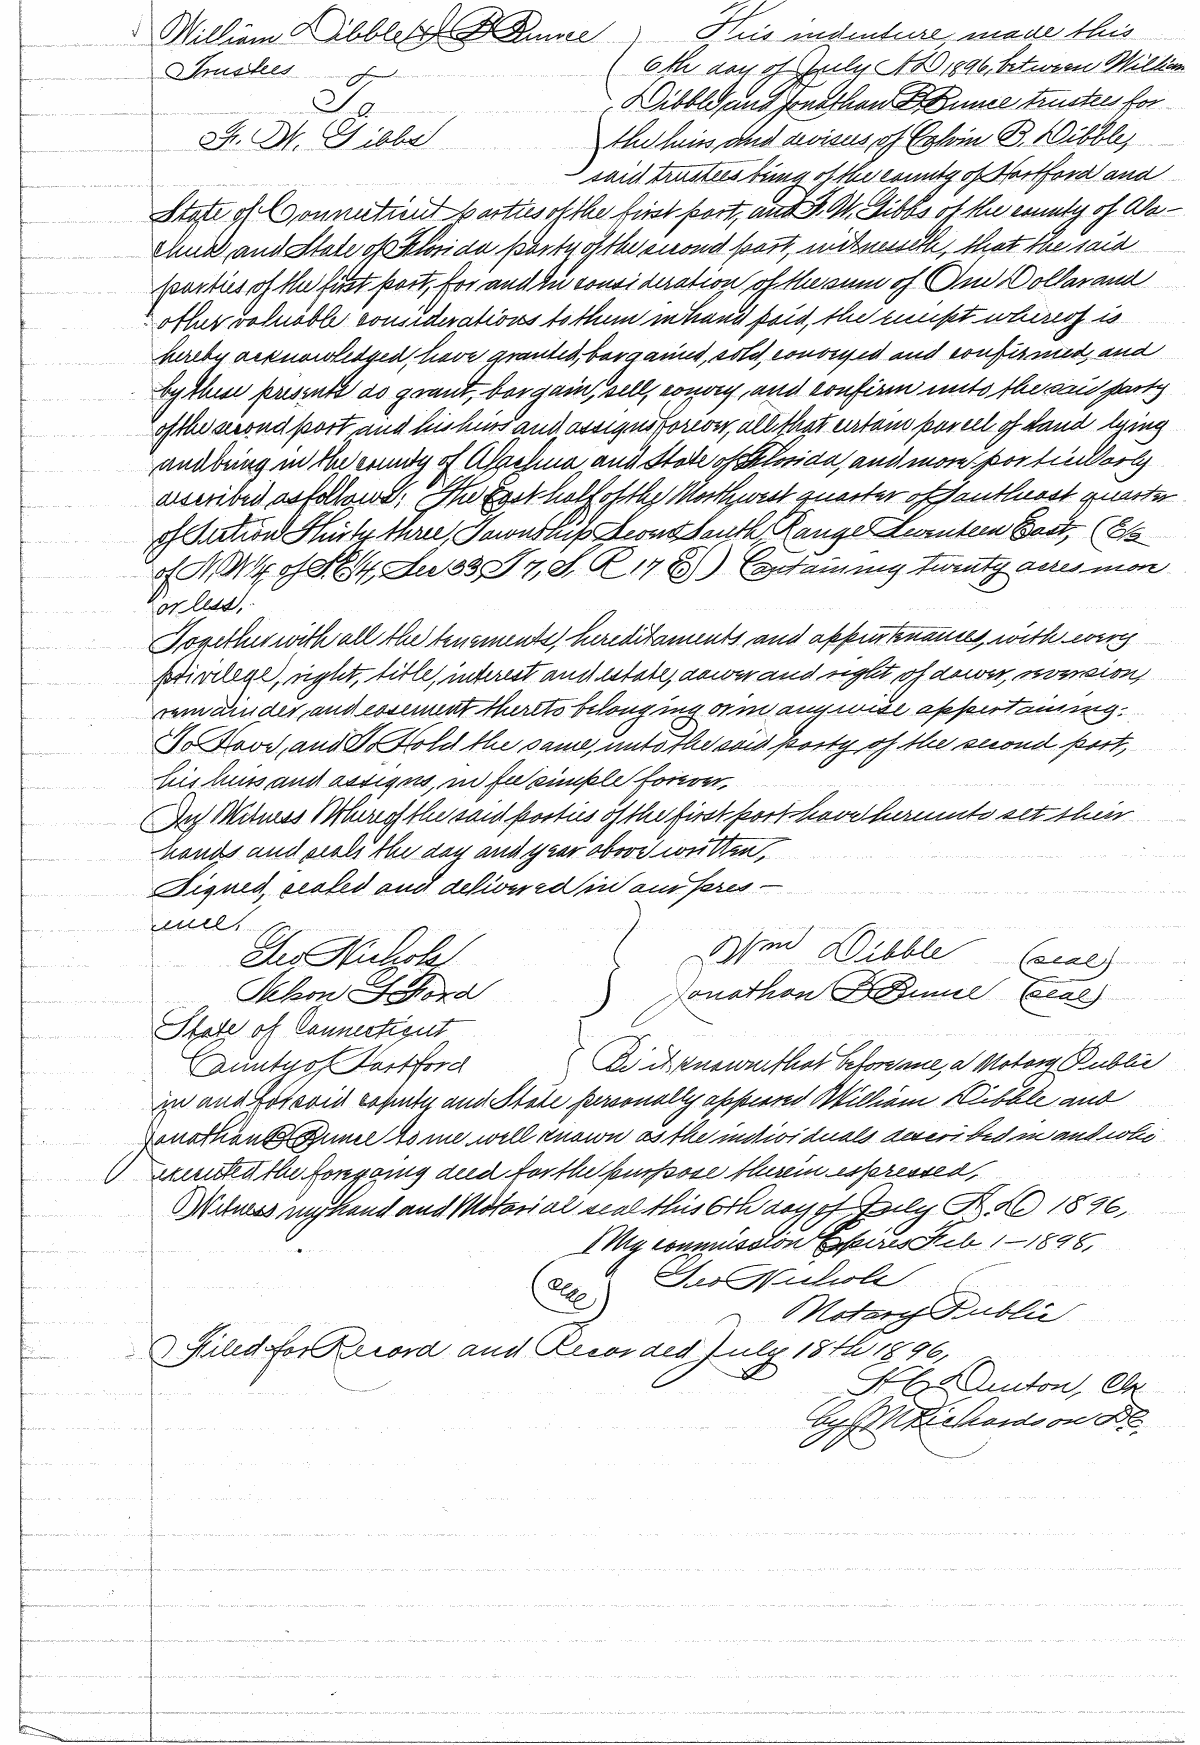 William Dibble & J B Bunce
Trustees
To
F. W. Gibbs
This indenture made this
6th day of July A D 1896, between William
Dibble and Jonathan B Bunce trustees for
the heirs and devisees of Calvin B. Dibble,
said trustees being of the county of Hartford and
State of Connecticut parties of the first part, and F. W. Gibbs of the county of Ala-
chua, and State of Florida party of the second part, witnesseth, that the said
parties of the first part, for and in consideration of the sum of One Dollar and
other valuable considerations to them in hand paid, the receipt whereof is
hereby acknowledged, have granted, bargained, sold, conveyed and confirmed, and
by these presents do grant, bargain, sell, convey, and confirm unto the said party
of the second part and his heirs and assigns forever, all that certain parcel of land lying
and being in the county of Alachua, and State of Florida, and more particularly
described as follows: The East half of the Northwest quarter of Southeast quarter
of Section Thirty three, Township Seven South, Range Seventeen East, (E/2
of N.W 1/4 of S.E 1/4, Sec 33 T 7, S. R 17 E) Containing twenty acres more
or less.
Together with all the tenements, hereditaments and appurtenances, with every
privilege, right, title, interest and estate, dower and right of dower, reversion,
remainder, and easement thereto belonging or in anywise appertaining:
To Have, and To Hold the same, unto the said party of the second part,
his heirs and assigns, in fee simple forever.
In Witness Whereof the said parties of the first part have hereunto set their
hands and seals the day and year above written.
Signed, sealed and delivered in our pres-
ence.
Geo Nichols
Nelson G Ford
Wm Dibble (seal)
Jonathan B Bunce (seal)
State of Connecticut
County of Hartford
Be it known that before me, a Notary Public
in and for said county and State personally appeared William Dibble and
Jonathan B Bunce to me well known as the individuals described in and who
executed the foregoing deed for the purpose therein expressed.
Witness my hand and Notorial seal this 6th day of July A. D 1896,
My commission Expires Feb 1-1898,
(seal) Geo Nichols
Notary Public
Filed for Record and Recorded July 18th 1896,
H C Denton, Clk
by J M Richardson D.C.